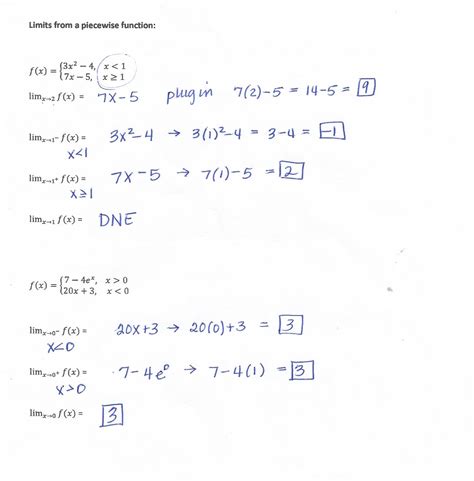 Limits from a piecewise function:
f(x) = {3x² − 4, x < 1
{7x − 5, x ≥ 1
limₓ→₂ f(x) = 7x−5 plug in 7(2)−5 = 14−5 = 9
limₓ→₁⁻ f(x) = 3x²−4 → 3(1)²−4 = 3−4 = −1
x<1
limₓ→₁⁺ f(x) = 7x−5 → 7(1)−5 = 2
x≥1
limₓ→₁ f(x) = DNE
f(x) = {7 − 4eˣ, x > 0
{20x + 3, x < 0
limₓ→₀⁻ f(x) = 20x+3 → 20(0)+3 = 3
x<0
limₓ→₀⁺ f(x) = 7−4e⁰ → 7−4(1) = 3
x>0
limₓ→₀ f(x) = 3